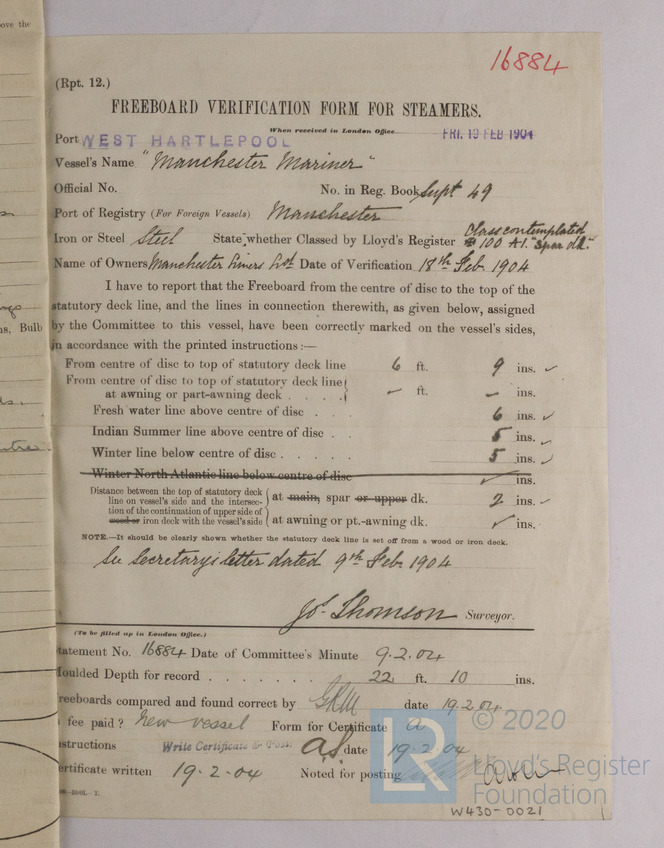 ove the
16884
(Rpt. 12.)
FREEBOARD VERIFICATION FORM FOR STEAMERS.
When received in London Office
Port WEST HARTLEPOOL FRI. 19 FEB 1904
Vessel's Name "Manchester Mariner"
Official No. No. in Reg. Book Supt 49
Port of Registry (For Foreign Vessels) Manchester
Class contemplated
Iron or Steel Steel State whether Classed by Lloyd's Register 100 A1. "Spar dk."
Name of Owners Manchester Liners Ltd Date of Verification 18th Feb. 1904
I have to report that the Freeboard from the centre of disc to the top of the
statutory deck line, and the lines in connection therewith, as given below, assigned
by the Committee to this vessel, have been correctly marked on the vessel's sides,
in accordance with the printed instructions :—
From centre of disc to top of statutory deck line 6 ft. 9 ins.
From centre of disc to top of statutory deck line
at awning or part-awning deck . . . . – ft. – ins.
Fresh water line above centre of disc . . . 6 ins.
Indian Summer line above centre of disc . . 5 ins.
Winter line below centre of disc . . . . . 5 ins.
Winter North Atlantic line below centre of disc ins.
Distance between the top of statutory deck
line on vessel's side and the intersec- at main, spar or upper dk. 2 ins.
tion of the continuation of upper side of
wood or iron deck with the vessel's side at awning or pt.-awning dk. ins.
NOTE.—It should be clearly shown whether the statutory deck line is set off from a wood or iron deck.
See Secretary's letter dated 9th Feb. 1904
Jos. Thomson Surveyor.
(To be filled up in London Office.)
tatement No. 16884 Date of Committee's Minute 9.2.04
Moulded Depth for record . . . . . . . 22 ft. 10 ins.
reeboards compared and found correct by GRM date 19.2.04
fee paid? New vessel Form for Certificate a
nstructions Write Certificate & Post date 19.2.04
ertificate written 19.2.04 Noted for posting
LR © 2020
Lloyd's Register
Foundation
W430-0021
ns, Bulb